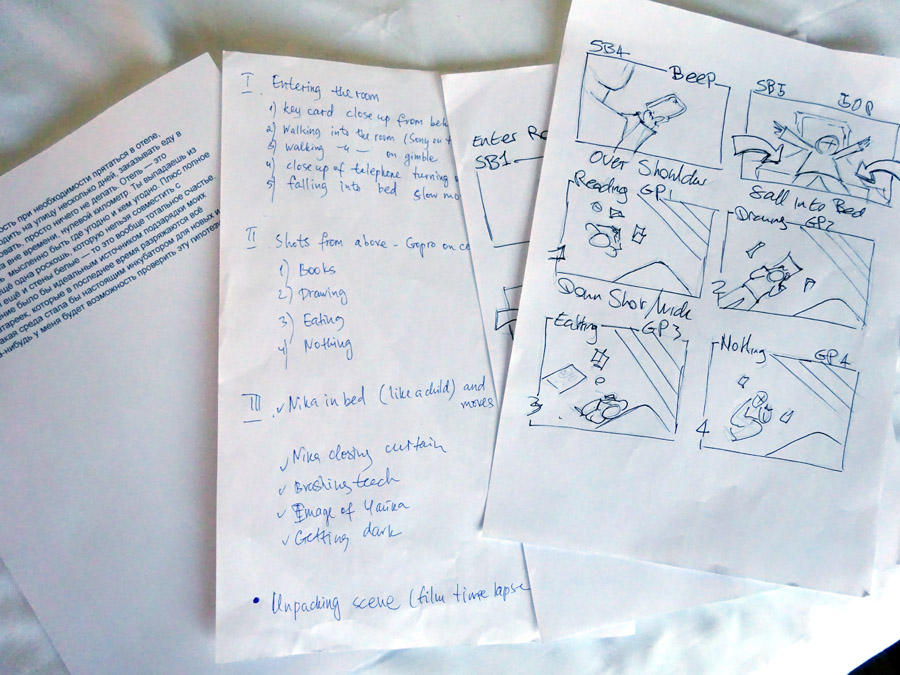 ость при необходимости прятаться в отеле,
одить на улицу несколько дней, заказывать еду в
овать, просто ничего не делать. Отель — это
вне времени, нулевой километр. Ты выпадаешь из
мысленно быть где угодно и кем угодно. Плюс полное
щё одна роскошь, которую нельзя совместить с
ещё и стены белые — то это вообще тотальное счастье.
ение было бы идеальным источником подзарядки моих
атареек, которые в последнее время разряжаются всё
акая среда стала бы настоящим инкубатором для новых и
а-нибудь у меня будет возможность проверить эту гипотез
I. Entering the room
1) key card close up from
2) Walking into the room (Sony on
3) walking -"- on gimble
4) close up of telephone turning
5) falling into bed slow mo
II. Shots from above - Gopro on
1) Books
2) Drawing
3) Eating
4) Nothing
III. Nika in bed (like a child) and
moves
Nika closing curtain
Brashing teeth
Image of
Getting dark
Unpacking scene (film time lapse
Enter
SB1
SB4
Beep
Over Shoulder
SB5
Fall Into Bed
Reading GP1
1
Down Shot/Wide
Drawing GP2
2
Eating GP3
3
Nothing GP4
4